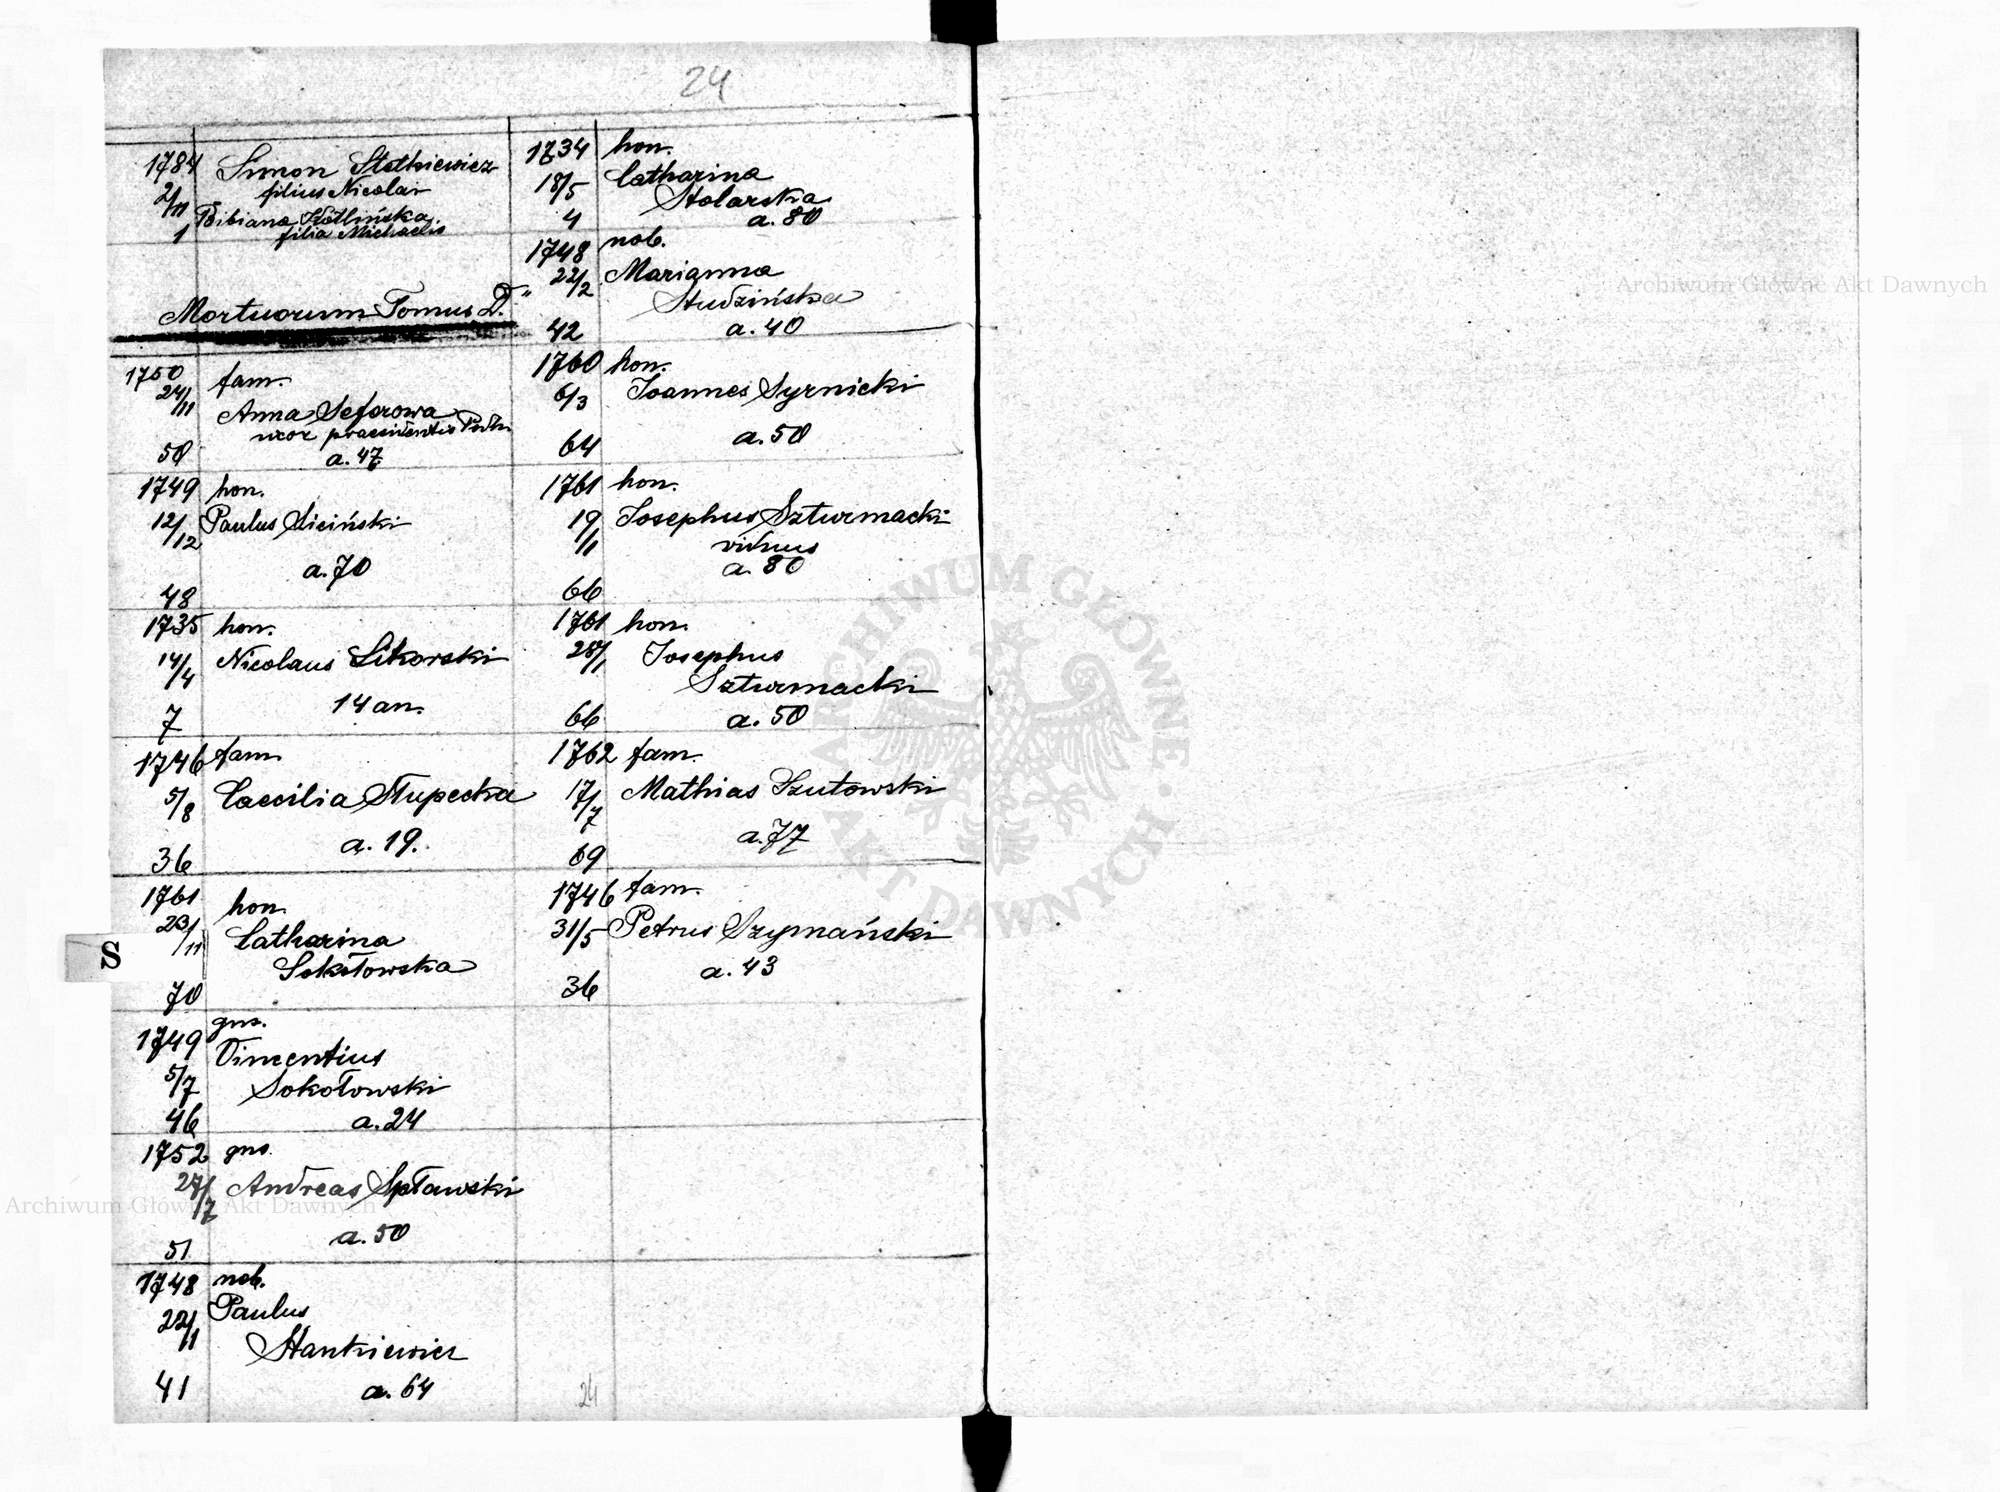 24
1784 Simon Stetkiewicz
2/11 filius Nicolai
Bibiana Kotlińska
1 filia Michaelis
Mortuorum Tomus D.
1750 fam.
24/11 Anna Seferowa
uxor praesidentis
50 a. 47
1749 hon.
12/12 Paulus Siciński
a. 70
48
1735 hon.
14/4 Nicolaus Sikorski
14 an.
7
1746 fam.
5/8 Caecilia Słupecka
a. 19.
36
1761 hon.
23/11 Catharina
Sokołowska
70
S
gns.
1749 Vincentius
5/7 Sokołowski
46 a. 24
1752 gns.
27/7 Andreas Spławski
a. 50
51
1748 nob.
22/11 Paulus
Stankiewicz
41 a. 64
1734 hon.
18/5 Catharina
Stolarska
4 a. 80
1748 nob.
22/2 Marianna
Studzińska
42 a. 40
1760 hon.
6/3 Joannes Syrnicki
64 a. 50
1761 hon.
19/1 Josephus Szturmacki
viduus
a. 80
66
1761 hon.
28/1 Josephus
Szturmacki
66 a. 50
1762 fam.
17/7 Mathias Szutowski
a. 77
69
1746 fam.
31/5 Petrus Szymański
a. 43
36
24
ARCHIWUM GŁÓWNE AKT DAWNYCH
Archiwum Główne Akt Dawnych
Archiwum Główne Akt Dawnych